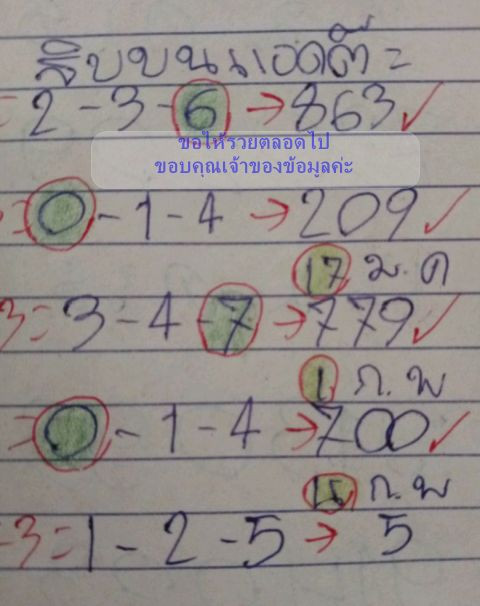 สิบบนแอดติ =
= 2 - 3 - 6 → 863 ✓
ขอให้รวยตลอดไป
ขอบคุณเจ้าของข้อมูลค่ะ
= 0 - 1 - 4 → 209 ✓
17 ม.ค
3 = 3 - 4 - 7 → 779 ✓
1 ก.พ
= 0 - 1 - 4 → 700 ✓
ก.พ
-3 = 1 - 2 - 5 → 5